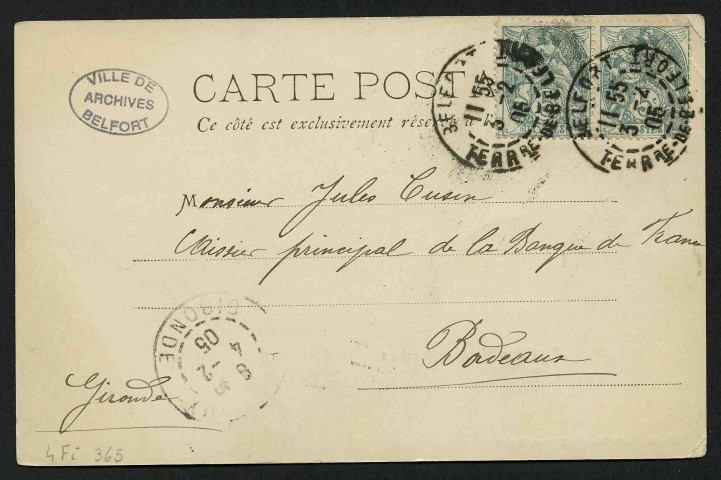 VILLE DE
ARCHIVES
BELFORT
CARTE POST
Ce côté est exclusivement réservé à
BELFORT TERRE DE BELFORT
11 55
3 -2
05
BELFORT TERRE DE BELFORT
11 55
3 -2
05
Monsieur Jules Cusin
Caissier principal de la Banque de France
Bordeaux
Gironde
GIRONDE
4 -2
05
4 Fi 365